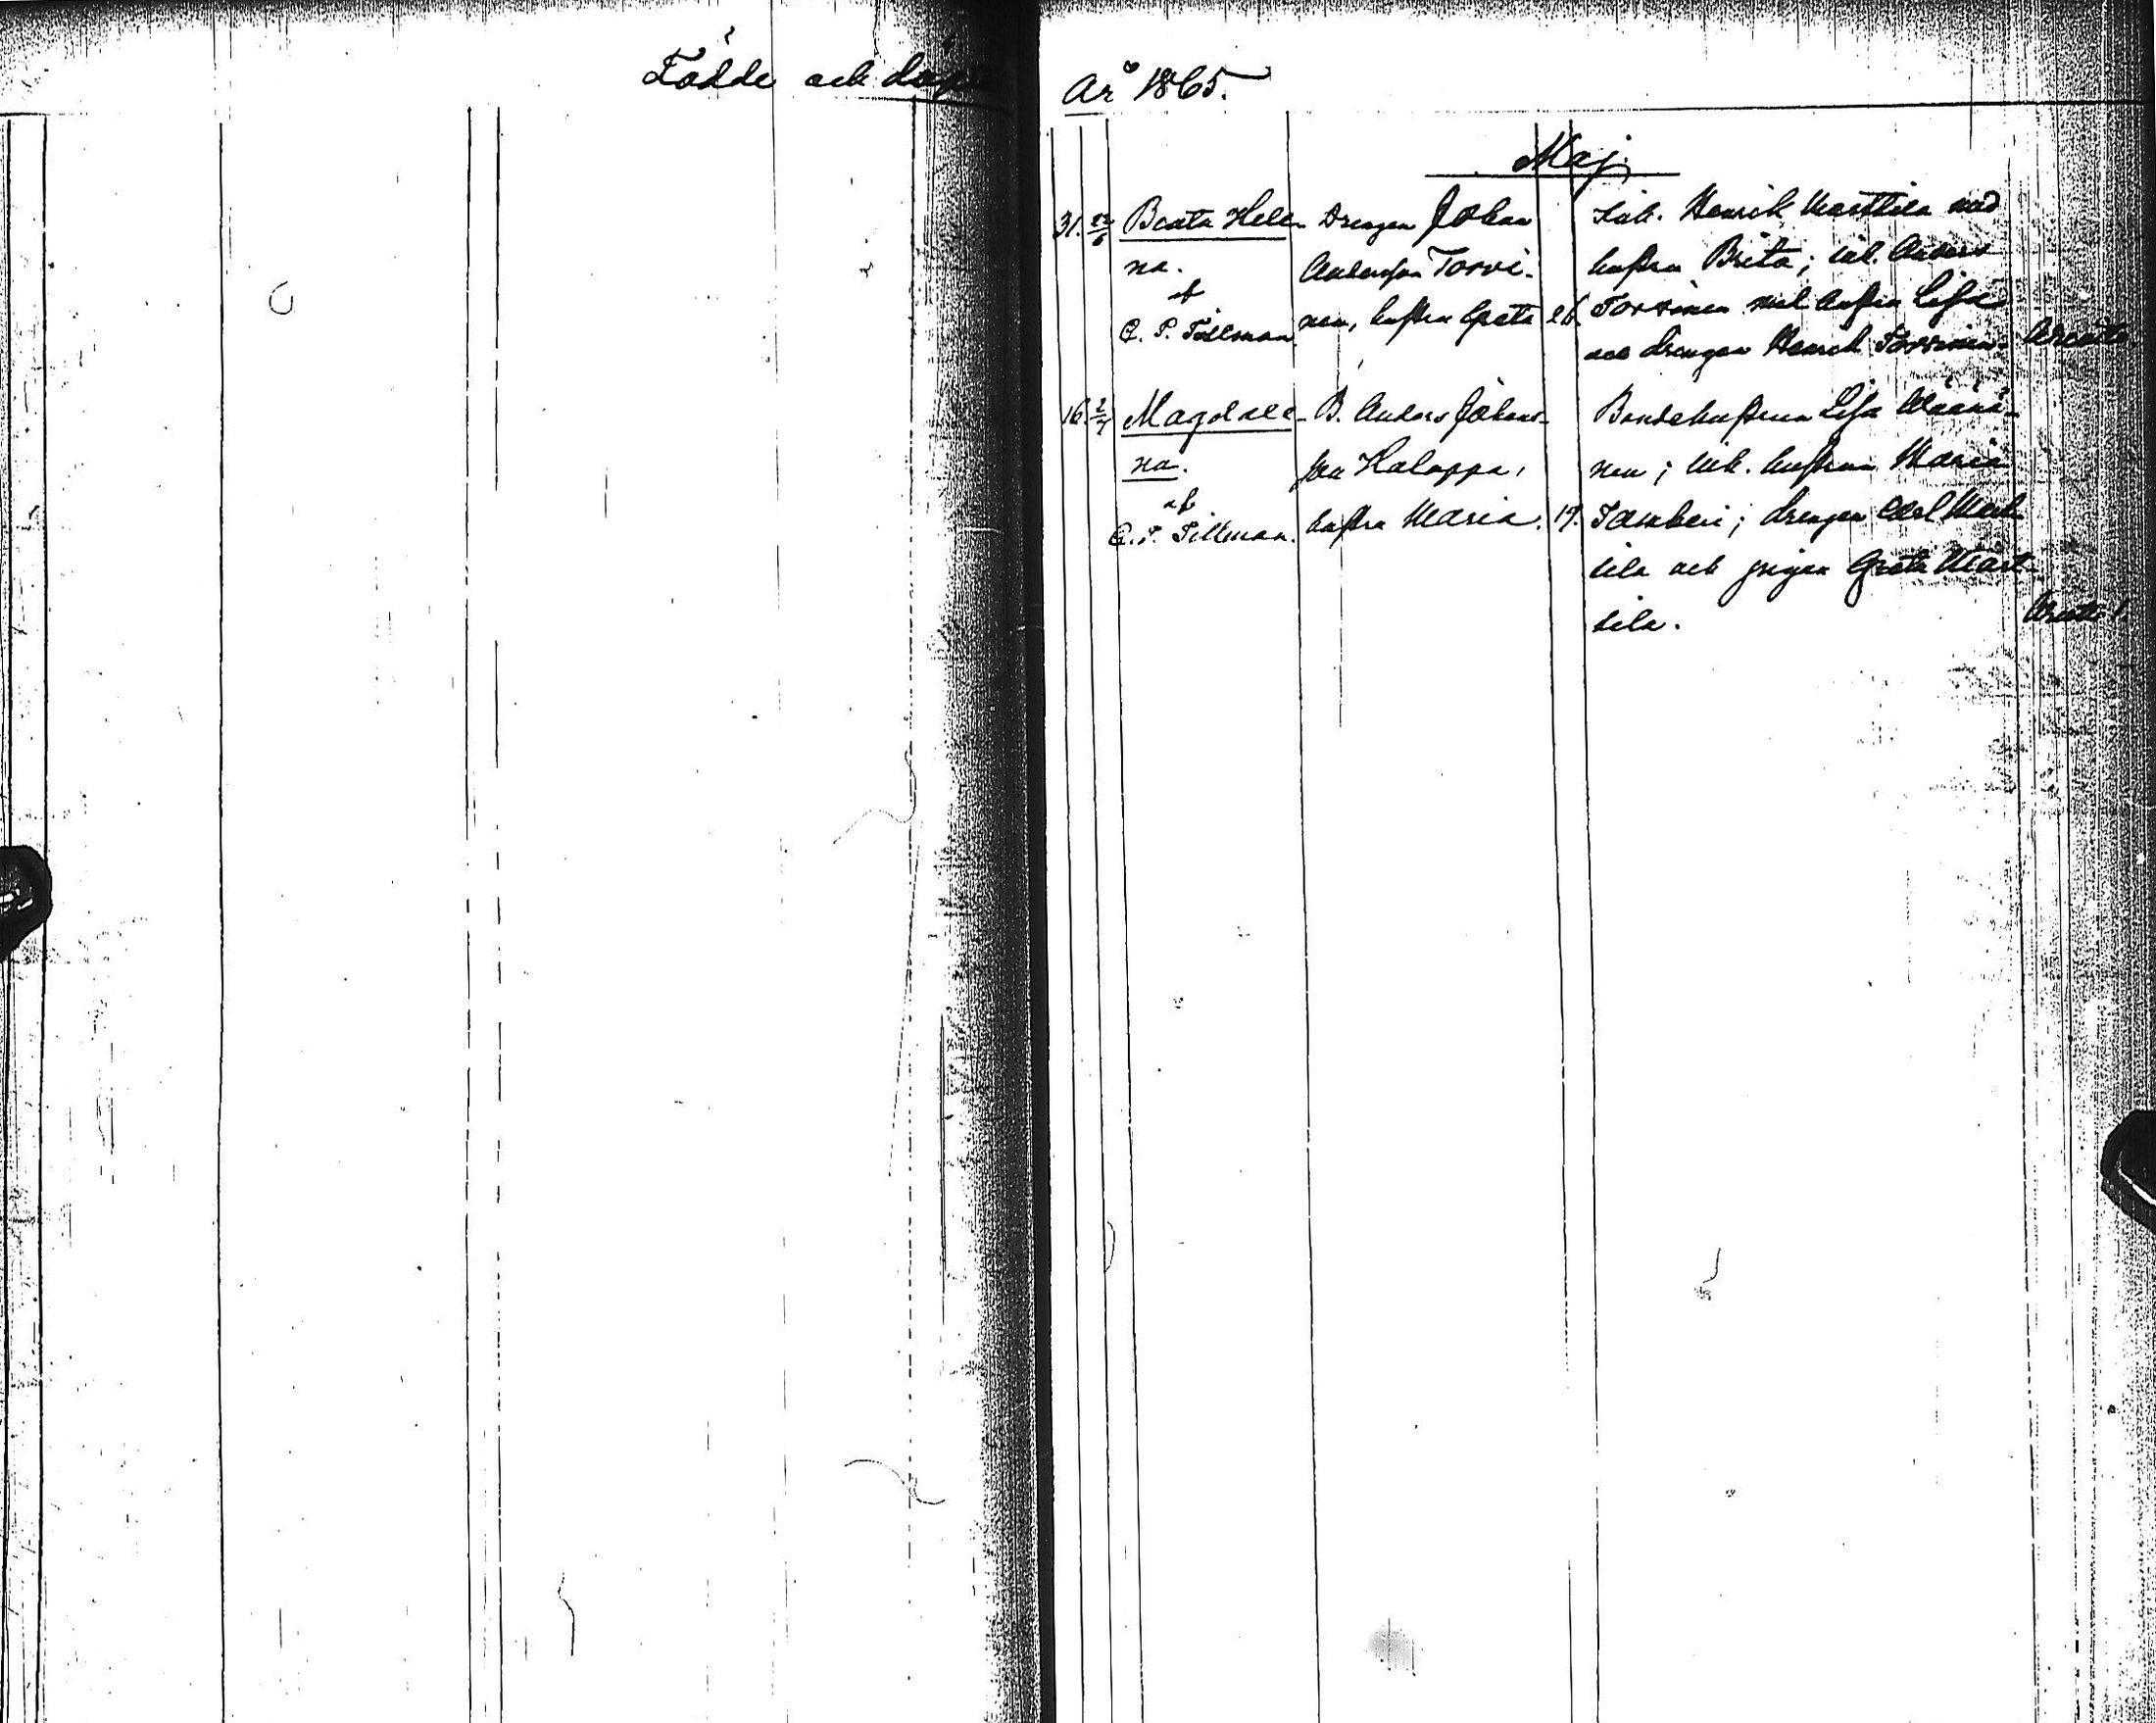 Födde och döpte År 1865.
Maj.
31. 22/6 Beata Hele-
na.
af
C. P. Tillman
Drengen Johan
Andersson Torvi-
nen, hustru Greta 26.
Inh. Henrik Marttila med
hustru Brita; inh. Anders
Torvinen med hustru Lisa
och drengen Henrik Torvinen.
16. 2/7 Magdale-
na.
af
C. P. Tillman.
B. Anders Johans-
son Halappa,
hustru Maria. 19.
Bondehustrun Lisa
nen; inh. hustrun Maria
Tamberi; drengen Carl Mart-
tila och pigan Greta Mart-
tila.